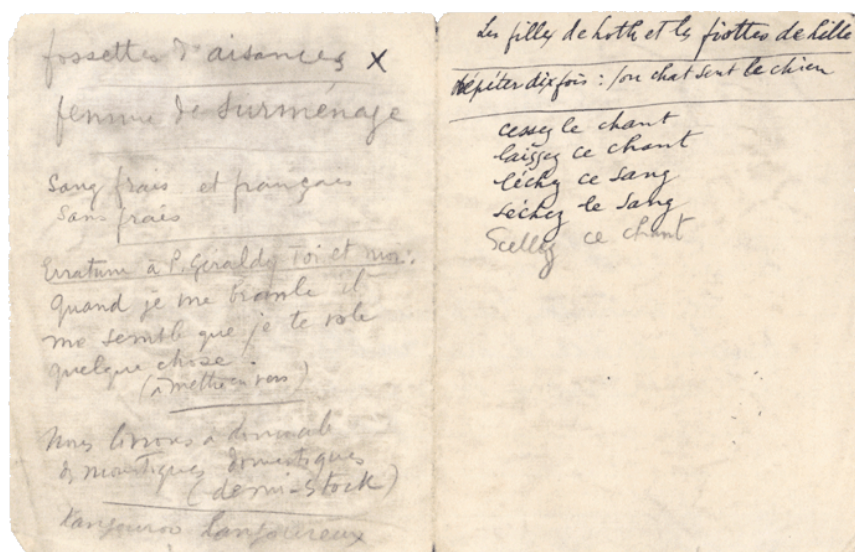 fossettes d'aisances x
femme de surménage
Sang frais et français
Sans frais
Erratum à P. Géraldy Toi et moi :
Quand je me branle il
me semble que je te vole
quelque chose.
(à mettre en vers)
Nous livrons à domicile
des moustiques domestiques
(demi-stock)
Kangouroo langoureux
Les filles de Loth et les fiottes de Lille
Répéter dix fois : son chat sent le chien
cessez le chant
laissez ce chant
léchez ce sang
séchez le sang
Scellez ce chant